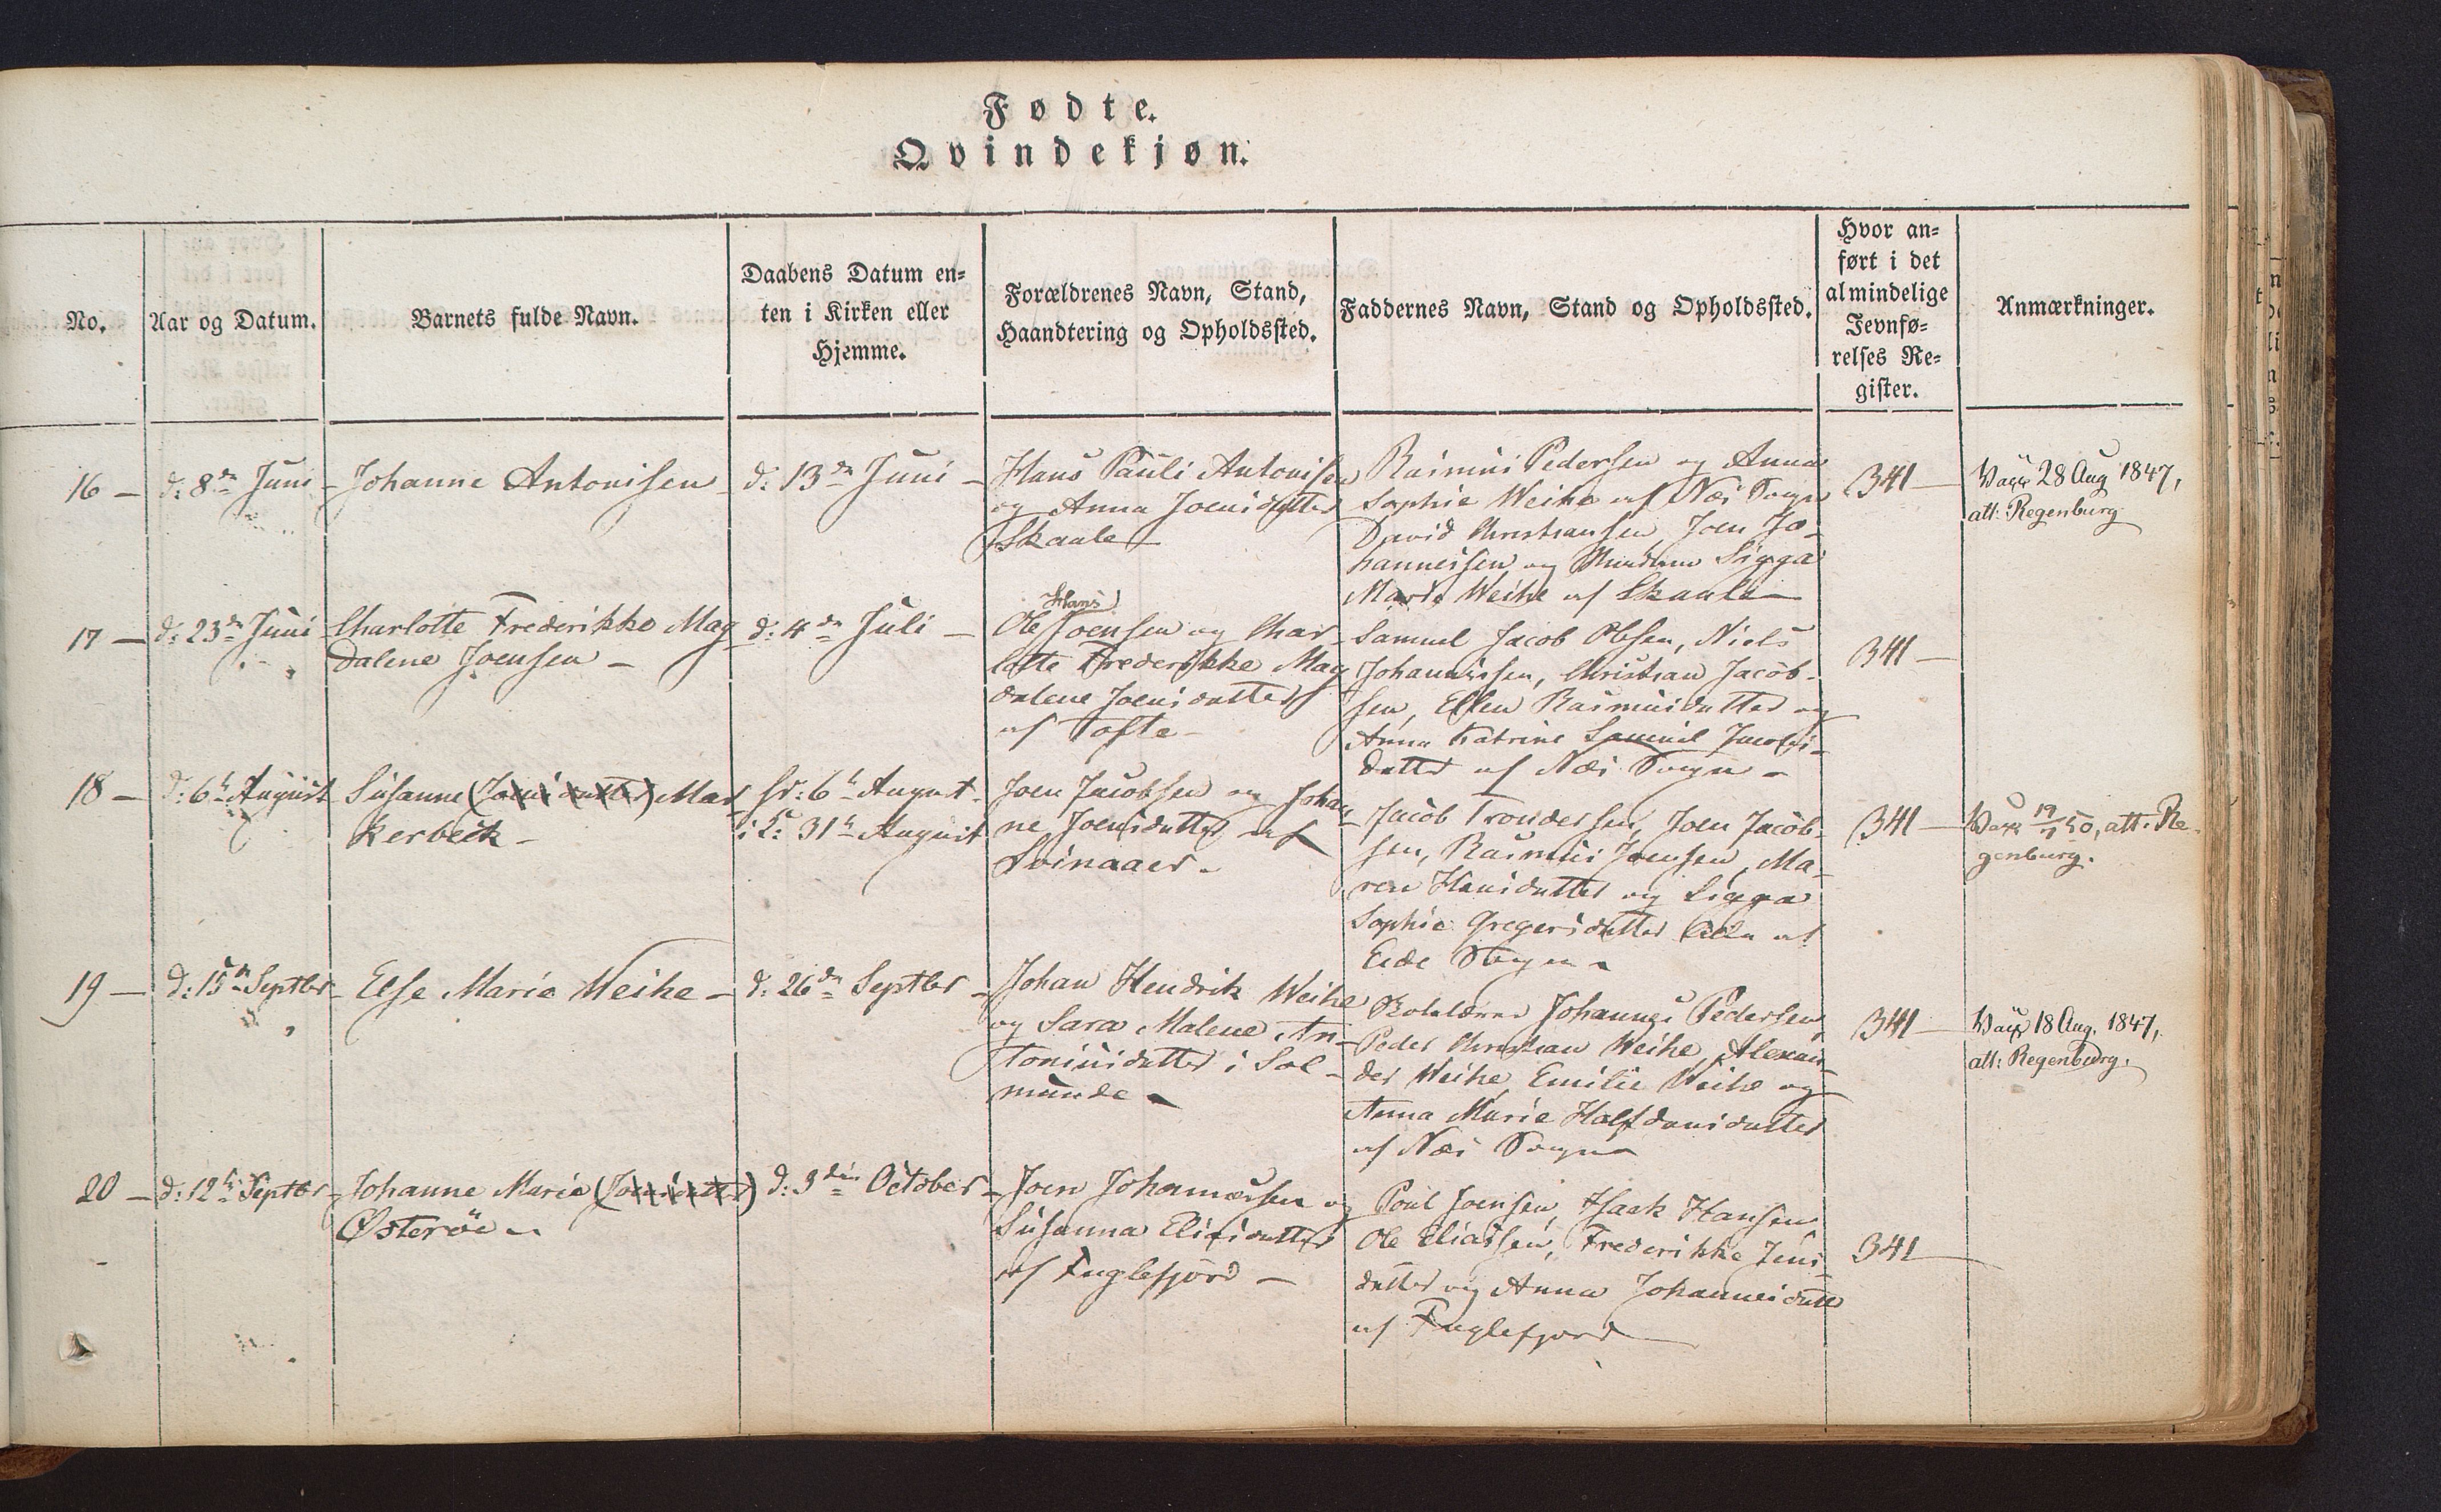 Fødte.
Qvindekjøn.
No.
Aar og Datum.
Barnets fulde Navn.
Daabens Datum en-
ten i Kirken eller
Hjemme.
Forældrenes Navn, Stand,
Haandtering og Opholdssted.
Faddernes Navn, Stand og Opholdssted.
Hvor an-
ført i det
almindelige
Jevnfø-
relses Re-
gister.
Anmærkninger.
16 –
d: 8de Juni –
Johanne Antonisen –
d: 13de Juni –
Hans Pauli Antonisen
og Anna Joensdatter
Skaale –
Rasmus Pedersen og Anna
Sophie Weihe af Næs Sogn
David Christiansen, Joen Jo-
hannessen og Sigga
Maria Weihe af Skaale –
341 –
Vacc 28 Aug 1847,
att: Regenburg
17 –
d: 23de Juni –
Charlotte Frederikke Mag-
dalene Joensen –
d: 4de Juli –
Hans
Ole Joensen og Char-
lotte Frederikke Mag-
dalene Joensdatter
af Tofte –
Samuel Jacob Olsen, Niels
Johannessen, Christian Jacob-
sen, Ellen Rasmusdatter og
Anna Katrine Samuel Jacobs-
datter af Næs Sogn –
341 –
18 –
d: 6te August
Susanne (Joensdatter) Mar
kerbeck –
d: 6te August.
i K: 31te August
Joen Jacobsen og Johan-
ne Joensdatter af
Svinaaer –
Jacob Trondersen, Joen Jacob-
sen, Rasmus Joensen, Ma-
ren Hansdatter og Sigga
Sophie Gregersdatter Alle af
Eide Sogn –
341 –
Vacc 19/7 50, att: Re-
genburg.
19 –
d: 15de Septbr –
Else Marie Weihe –
d: 26de Septbr –
Johan Hendrik Weihe
og Sara Malene An-
toniusdatter i Sol-
munde –
Johannes Pedersen,
Peder Christian Weihe, Alexan-
der Weihe, Emilie Weihe og
Anna Marie Halfdansdatter
af Næs Sogn –
341 –
Vacc 18 Aug. 1847,
att: Regenburg.
20 –
d: 12te Septbr –
Johanne Maria (Joensdatter)
Østerøe –
d: 3die October –
Joen Johannessen og
Susanna Elisdatter
af Fuglefjord –
Poul Joensen, Isack Hansen
Ole Eliassen, Frederikke Jens-
datter og Anna Johannesdatter
af Fuglefjord
341 –